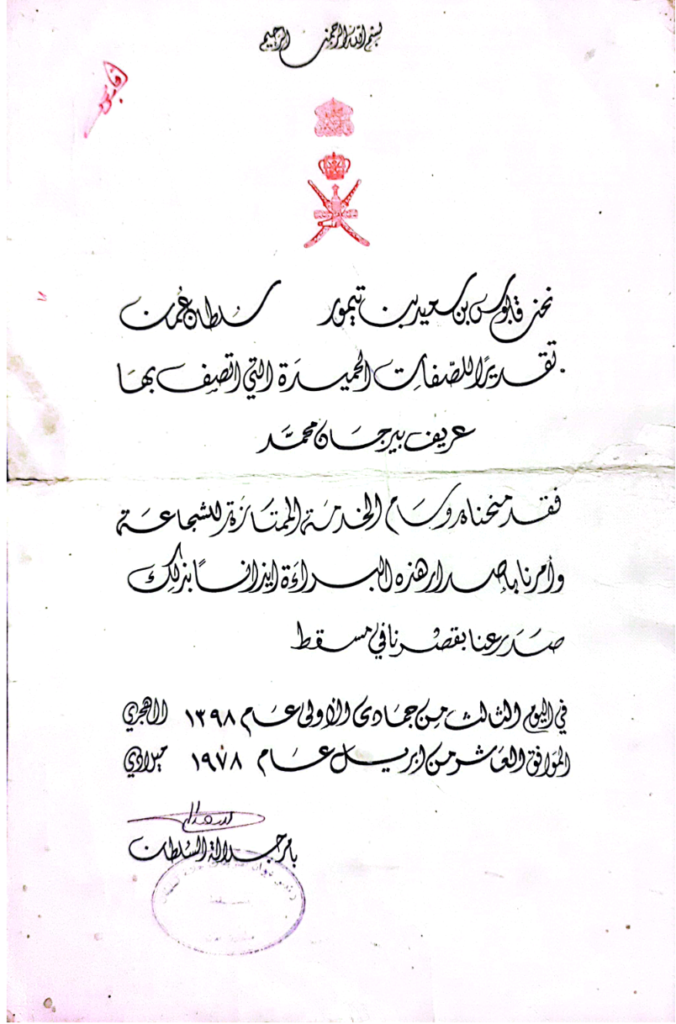 بسم الله الرحمن الرحيم
قابوس
نحن قابوس بن سعيد بن تيمور سلطان عُمان
تقديرًا للصّفات الحميدَة التي اتصف بهَا
عريف بيرجَان محمَّد
فقد منحناه وسَام الخدمَة الممتَازَة للشجاعَة
وأمرنا بإصدار هذه البراءَة ايذانًا بذلِك
صَدَر عنا بقصْرنا في مسقط
في اليوم الثالث من جمادى الأولى عام ١٣٩٨ الاهجري
الموافق العَاشر من ابريل عَام ١٩٧٨ ميلادي
بامر جلالة السُلطان